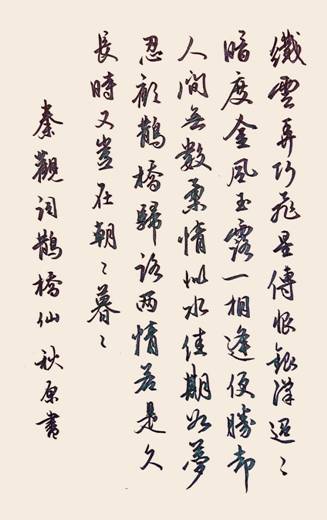 纖雲弄巧飛星傳恨銀漢迢〻
暗度金風玉露一相逢便勝却
人間無數柔情似水佳期如夢
忍顧鵲橋歸路兩情若是久
長時又豈在朝〻暮〻
秦觀詞鵲橋仙 秋原書